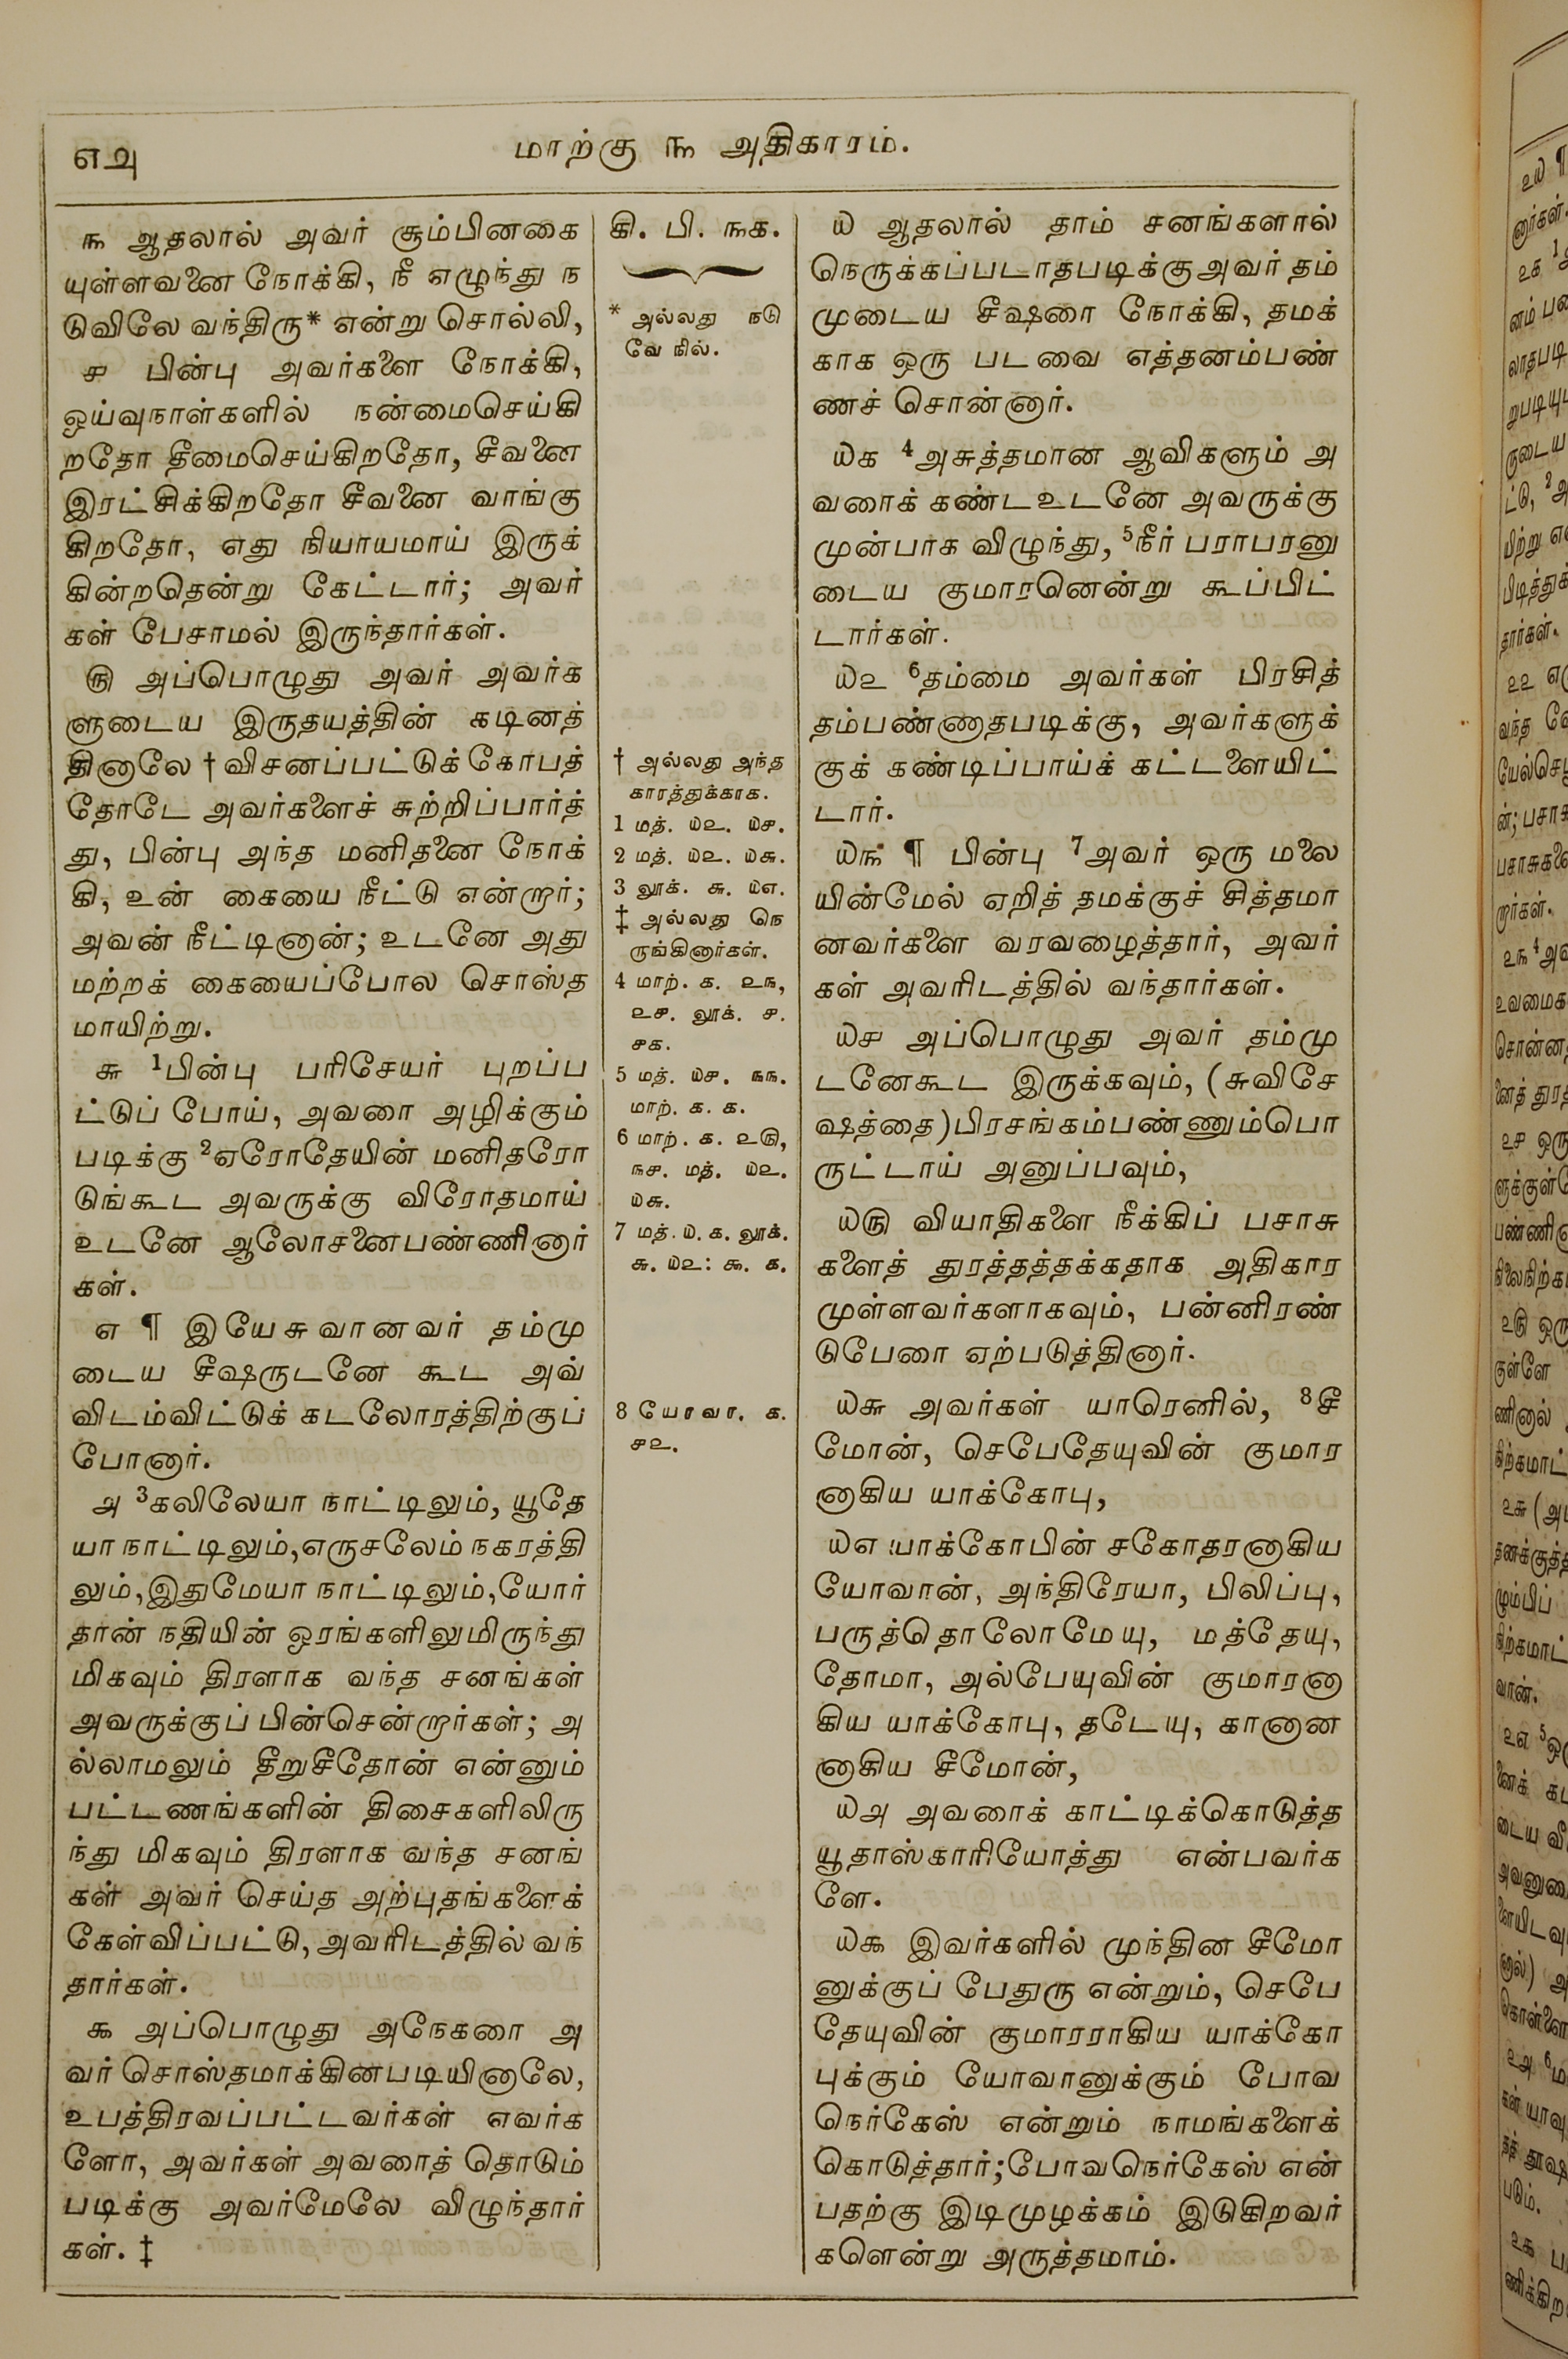 எஉ
மாற்கு ௩ அதிகாரம்.
௩ ஆதலால் அவர் சூம்பினகை
யுள்ளவனை நோக்கி, நீ எழுந்து ந
டுவிலே வந்திரு* என்று சொல்லி,
௪ பின்பு அவர்களை நோக்கி,
ஒய்வுநாள்களில் நன்மைசெய்கி
றதோ தீமைசெய்கிறதோ, சீவனை
இரட்சிக்கிறதோ சீவனை வாங்கு
கிறதோ, எது நியாயமாய் இருக்
கின்றதென்று கேட்டார்; அவர்
கள் பேசாமல் இருந்தார்கள்.
௫ அப்பொழுது அவர் அவர்க
ளுடைய இருதயத்தின் கடினத்
தினாலே † விசனப்பட்டுக் கோபத்
தோடே அவர்களைச் சுற்றிப்பார்த்
து, பின்பு அந்த மனிதனை நோக்
கி, உன் கையை நீட்டு என்றார்;
அவன் நீட்டினான்; உடனே அது
மற்றக் கையைப்போல சொஸ்த
மாயிற்று.
௬ ¹பின்பு பரிசேயர் புறப்ப
ட்டுப் போய், அவரை அழிக்கும்
படிக்கு ²ஏரோதேயின் மனிதரோ
டுங்கூட அவருக்கு விரோதமாய்
உடனே ஆலோசனைபண்ணினார்
கள்.
௭ ¶ இயேசுவானவர் தம்மு
டைய சீஷருடனே கூட அவ்
விடம்விட்டுக் கடலோரத்திற்குப்
போனார்.
௮ ³கலிலேயா நாட்டிலும், யூதே
யா நாட்டிலும், எருசலேம் நகரத்தி
லும், இதுமேயா நாட்டிலும், யோர்
தான் நதியின் ஓரங்களிலுமிருந்து
மிகவும் திரளாக வந்த சனங்கள்
அவருக்குப் பின்சென்றார்கள்; அ
ல்லாமலும் தீறுசீதோன் என்னும்
பட்டணங்களின் திசைகளிலிரு
ந்து மிகவும் திரளாக வந்த சனங்
கள் அவர் செய்த அற்புதங்களைக்
கேள்விப்பட்டு, அவரிடத்தில் வந்
தார்கள்.
௯ அப்பொழுது அநேகரை அ
வர் சொஸ்தமாக்கினபடியினாலே,
உபத்திரவப்பட்டவர்கள் எவர்க
ளோ, அவர்கள் அவரைத் தொடும்
படிக்கு அவர்மேலே விழுந்தார்
கள். ‡
கி. பி. ௩௧.
* அல்லது நடு
வே நில்.
† அல்லது அந்த
காரத்துக்காக.
1 மத். ௰௨. ௰௪.
2 மத். ௨௨. ௰௬.
3 லூக். ௬. ௰௭.
‡ அல்லது நெ
ருங்கினார்கள்.
4 மாற். ௧. ௨௩,
௨௪. லூக். ௪.
௪௧.
5 மத். ௰௪. ௩௩.
மாற். ௧. ௧.
6 மாற். ௧. ௨௫,
௩௪. மத். ௰௨.
௰௬.
7 மத். ௰. ௧. லூக்.
௬. ௰௨: ௯. ௧.
8 யோவா. ௧.
௪௨.
௰ ஆதலால் தாம் சனங்களால்
நெருக்கப்படாதபடிக்கு அவர் தம்
முடைய சீஷரை நோக்கி, தமக்
காக ஒரு படவை எத்தனம்பண்
ணச் சொன்னார்.
௰௧ ⁴அசுத்தமான ஆவிகளும் அ
வரைக் கண்டஉடனே அவருக்கு
முன்பாக விழுந்து, ⁵நீர் பராபரனு
டைய குமாரனென்று கூப்பிட்
டார்கள்.
௰௨ ⁶தம்மை அவர்கள் பிரசித்
தம்பண்ணாதபடிக்கு, அவர்களுக்
குக் கண்டிப்பாய்க் கட்டளையிட்
டார்.
௰௩ ¶ பின்பு ⁷அவர் ஒரு மலை
யின்மேல் ஏறித் தமக்குச் சித்தமா
னவர்களை வரவழைத்தார், அவர்
கள் அவரிடத்தில் வந்தார்கள்.
௰௪ அப்பொழுது அவர் தம்மு
டனேகூட இருக்கவும், (சுவிசே
ஷத்தை)பிரசங்கம்பண்ணும்பொ
ருட்டாய் அனுப்பவும்,
௰௫ வியாதிகளை நீக்கிப் பசாசு
களைத் துரத்தத்தக்கதாக அதிகார
முள்ளவர்களாகவும், பன்னிரண்
டுபேரை ஏற்படுத்தினார்.
௰௬ அவர்கள் யாரெனில், ⁸சீ
மோன், செபேதேயுவின் குமார
னாகிய யாக்கோபு,
௰௭ யாக்கோபின் சகோதரனாகிய
யோவான், அந்திரேயா, பிலிப்பு,
பருத்தொலோமேயு, மத்தேயு,
தோமா, அல்பேயுவின் குமாரனா
கிய யாக்கோபு, ததேயு, கானான
னாகிய சீமோன்,
௰௮ அவரைக் காட்டிக்கொடுத்த
யூதாஸ்காரியோத்து என்பவர்க
ளே.
௰௯ இவர்களில் முந்தின சீமோ
னுக்குப் பேதுரு என்றும், செபே
தேயுவின் குமாரராகிய யாக்கோ
புக்கும் யோவானுக்கும் போவ
நெர்கேஸ் என்றும் நாமங்களைக்
கொடுத்தார்; போவநெர்கேஸ் என்
பதற்கு இடிமுழக்கம் இடுகிறவர்
களென்று அருத்தமாம்.